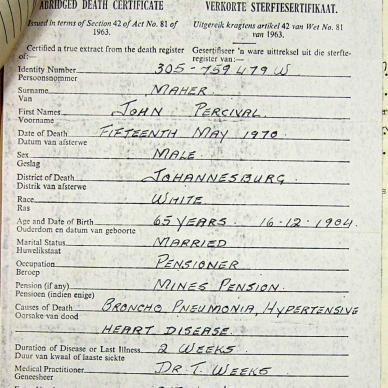 ABRIDGED DEATH CERTIFICATE
VERKORTE STERFTESERTIFIKAAT.
Issued in terms of Section 42 of Act No. 81 of
1963.
Uitgereik kragtens artikel 42 van Wet No. 81
van 1963.
Certified a true extract from the death register
of:—
Gesertifiseer 'n ware uittreksel uit die sterfte-
register van:—
Identity Number 305-759479 W
Persoonsnommer
Surname MAHER.
Van
First Names JOHN PERCIVAL.
Voorname
Date of Death FIFTEENTH MAY 1970.
Datum van afsterwe
Sex MALE.
Geslag
District of Death JOHANNESBURG.
Distrik van afsterwe
Race WHITE
Ras
Age and Date of Birth 65 YEARS. 16-12-1904.
Ouderdom en datum van geboorte
Marital Status MARRIED
Huwelikstaat
Occupation PENSIONER
Beroep
Pension (if any) MINES PENSION.
Pensioen (indien enige)
Causes of Death BRONCHO PNEUMONIA, HYPERTENSIVE
Oorsake van dood
HEART DISEASE.
Duration of Disease or Last Illness 2 WEEKS.
Duur van kwaal of laaste siekte
Medical Practitioner DR. T. WEEKS
Geneesheer